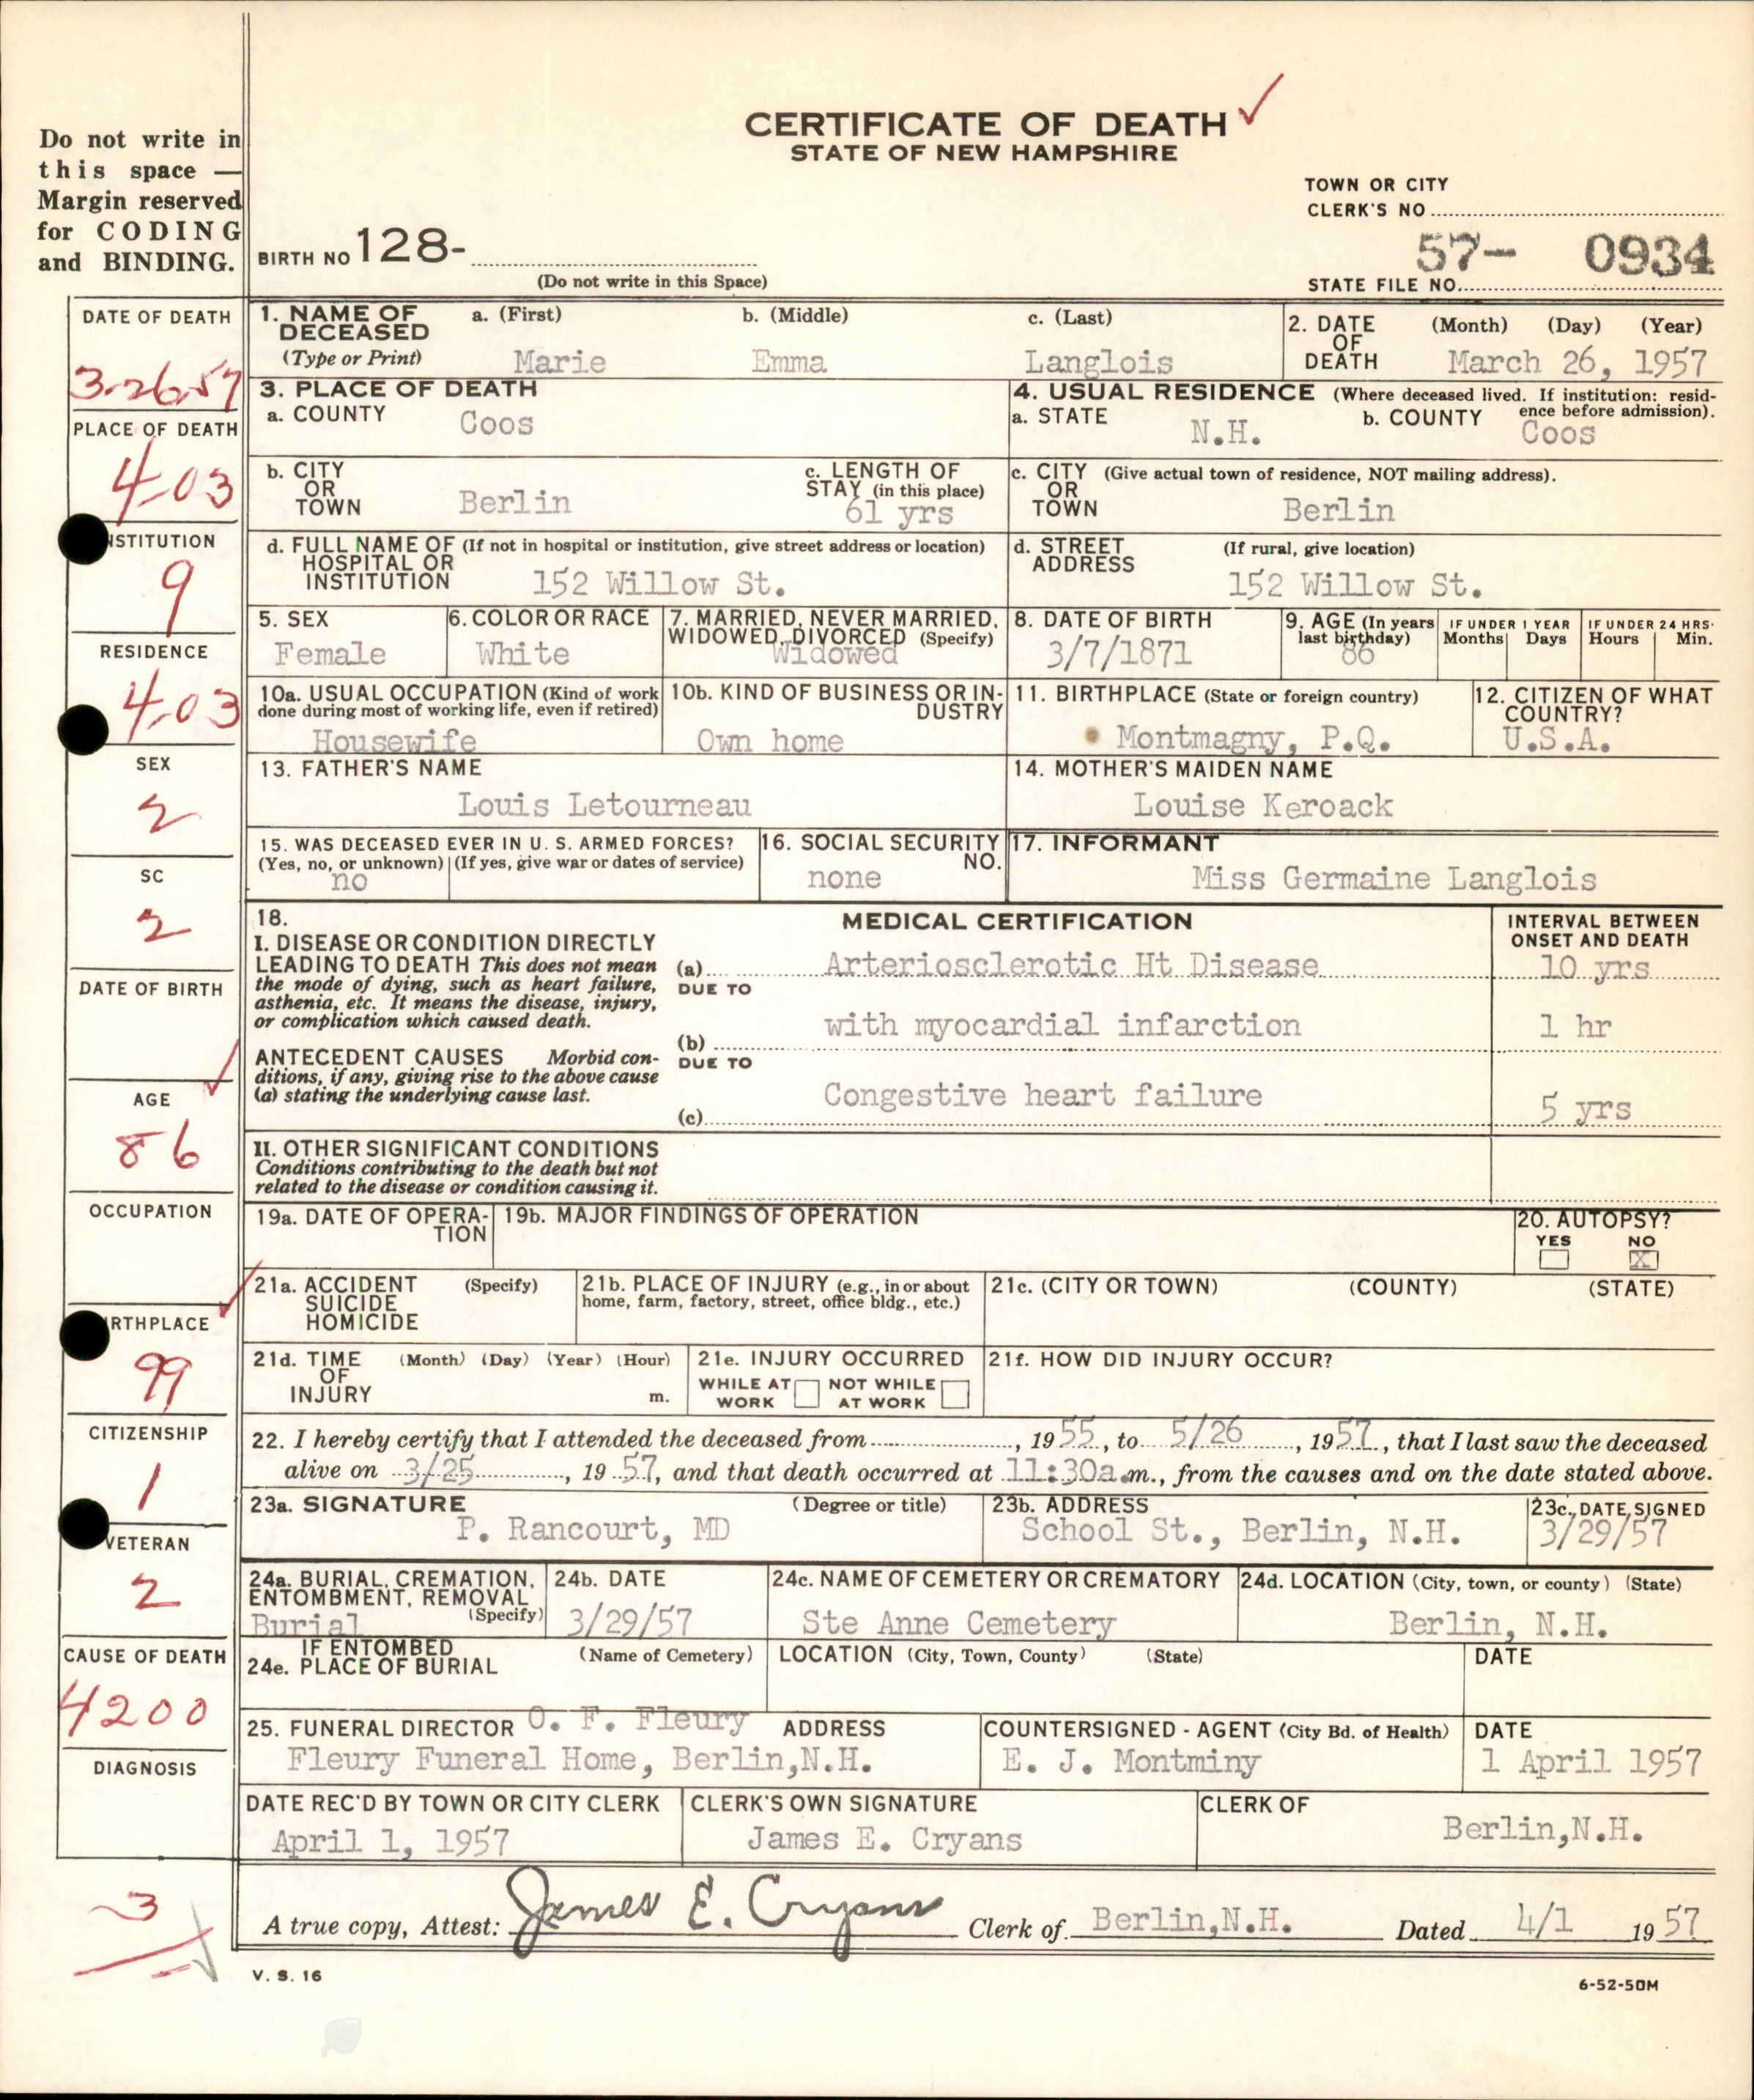 CERTIFICATE OF DEATH ✓
STATE OF NEW HAMPSHIRE
Do not write in
this space —
Margin reserved
for CODING
and BINDING.
TOWN OR CITY
CLERK'S NO
BIRTH NO 128-
(Do not write in this Space)
57- 0934
STATE FILE NO.
DATE OF DEATH
3-26-57
PLACE OF DEATH
4-03
NSTITUTION
9
RESIDENCE
4-03
SEX
2
SC
2
DATE OF BIRTH
✓
AGE
86
OCCUPATION
✓
RTHPLACE
99
CITIZENSHIP
1
VETERAN
2
CAUSE OF DEATH
4200
DIAGNOSIS
3
1. NAME OF DECEASED (Type or Print) a. (First) b. (Middle) c. (Last)
Marie Emma Langlois
2. DATE OF DEATH (Month) (Day) (Year)
March 26, 1957
3. PLACE OF DEATH
a. COUNTY Coos
4. USUAL RESIDENCE (Where deceased lived. If institution: resid-
ence before admission).
a. STATE N.H. b. COUNTY Coos
b. CITY OR TOWN Berlin
c. LENGTH OF STAY (in this place) 61 yrs
c. CITY OR TOWN (Give actual town of residence, NOT mailing address).
Berlin
d. FULL NAME OF HOSPITAL OR INSTITUTION (If not in hospital or institution, give street address or location)
152 Willow St.
d. STREET ADDRESS (If rural, give location)
152 Willow St.
5. SEX
Female
6. COLOR OR RACE
White
7. MARRIED, NEVER MARRIED, WIDOWED, DIVORCED (Specify)
Widowed
8. DATE OF BIRTH
3/7/1871
9. AGE (In years last birthday)
86
IF UNDER 1 YEAR
Months Days
IF UNDER 24 HRS.
Hours Min.
10a. USUAL OCCUPATION (Kind of work done during most of working life, even if retired)
Housewife
10b. KIND OF BUSINESS OR IN-
DUSTRY
Own home
11. BIRTHPLACE (State or foreign country)
Montmagny, P.Q.
12. CITIZEN OF WHAT COUNTRY?
U.S.A.
13. FATHER'S NAME
Louis Letourneau
14. MOTHER'S MAIDEN NAME
Louise Keroack
15. WAS DECEASED EVER IN U. S. ARMED FORCES?
(Yes, no, or unknown) (If yes, give war or dates of service)
no
16. SOCIAL SECURITY NO.
none
17. INFORMANT
Miss Germaine Langlois
18.
MEDICAL CERTIFICATION
INTERVAL BETWEEN
ONSET AND DEATH
I. DISEASE OR CONDITION DIRECTLY
LEADING TO DEATH This does not mean
the mode of dying, such as heart failure,
asthenia, etc. It means the disease, injury,
or complication which caused death.
(a) Arteriosclerotic Ht Disease 10 yrs
DUE TO
with myocardial infarction 1 hr
(b)
ANTECEDENT CAUSES Morbid con-
ditions, if any, giving rise to the above cause
(a) stating the underlying cause last.
DUE TO
Congestive heart failure 5 yrs
(c)
II. OTHER SIGNIFICANT CONDITIONS
Conditions contributing to the death but not
related to the disease or condition causing it.
19a. DATE OF OPERA-
TION
19b. MAJOR FINDINGS OF OPERATION
20. AUTOPSY?
YES NO
X
21a. ACCIDENT SUICIDE HOMICIDE (Specify)
21b. PLACE OF INJURY (e.g., in or about
home, farm, factory, street, office bldg., etc.)
21c. (CITY OR TOWN) (COUNTY) (STATE)
21d. TIME OF INJURY (Month) (Day) (Year) (Hour)
m.
21e. INJURY OCCURRED
WHILE AT WORK NOT WHILE AT WORK
21f. HOW DID INJURY OCCUR?
22. I hereby certify that I attended the deceased from , 1955, to 5/26, 1957, that I last saw the deceased
alive on 3/25, 1957, and that death occurred at 11:30a.m., from the causes and on the date stated above.
23a. SIGNATURE (Degree or title)
P. Rancourt, MD
23b. ADDRESS
School St., Berlin, N.H.
23c. DATE SIGNED
3/29/57
24a. BURIAL, CREMATION, ENTOMBMENT, REMOVAL (Specify)
Burial
24b. DATE
3/29/57
24c. NAME OF CEMETERY OR CREMATORY
Ste Anne Cemetery
24d. LOCATION (City, town, or county) (State)
Berlin, N.H.
IF ENTOMBED
24e. PLACE OF BURIAL (Name of Cemetery) LOCATION (City, Town, County) (State) DATE
25. FUNERAL DIRECTOR O. F. Fleury ADDRESS
Fleury Funeral Home, Berlin,N.H.
COUNTERSIGNED - AGENT (City Bd. of Health)
E. J. Montminy
DATE
1 April 1957
DATE REC'D BY TOWN OR CITY CLERK
April 1, 1957
CLERK'S OWN SIGNATURE
James E. Cryans
CLERK OF
Berlin,N.H.
A true copy, Attest: James E. Cryans Clerk of Berlin,N.H. Dated 4/1 1957
V. S. 16
6-52-50M